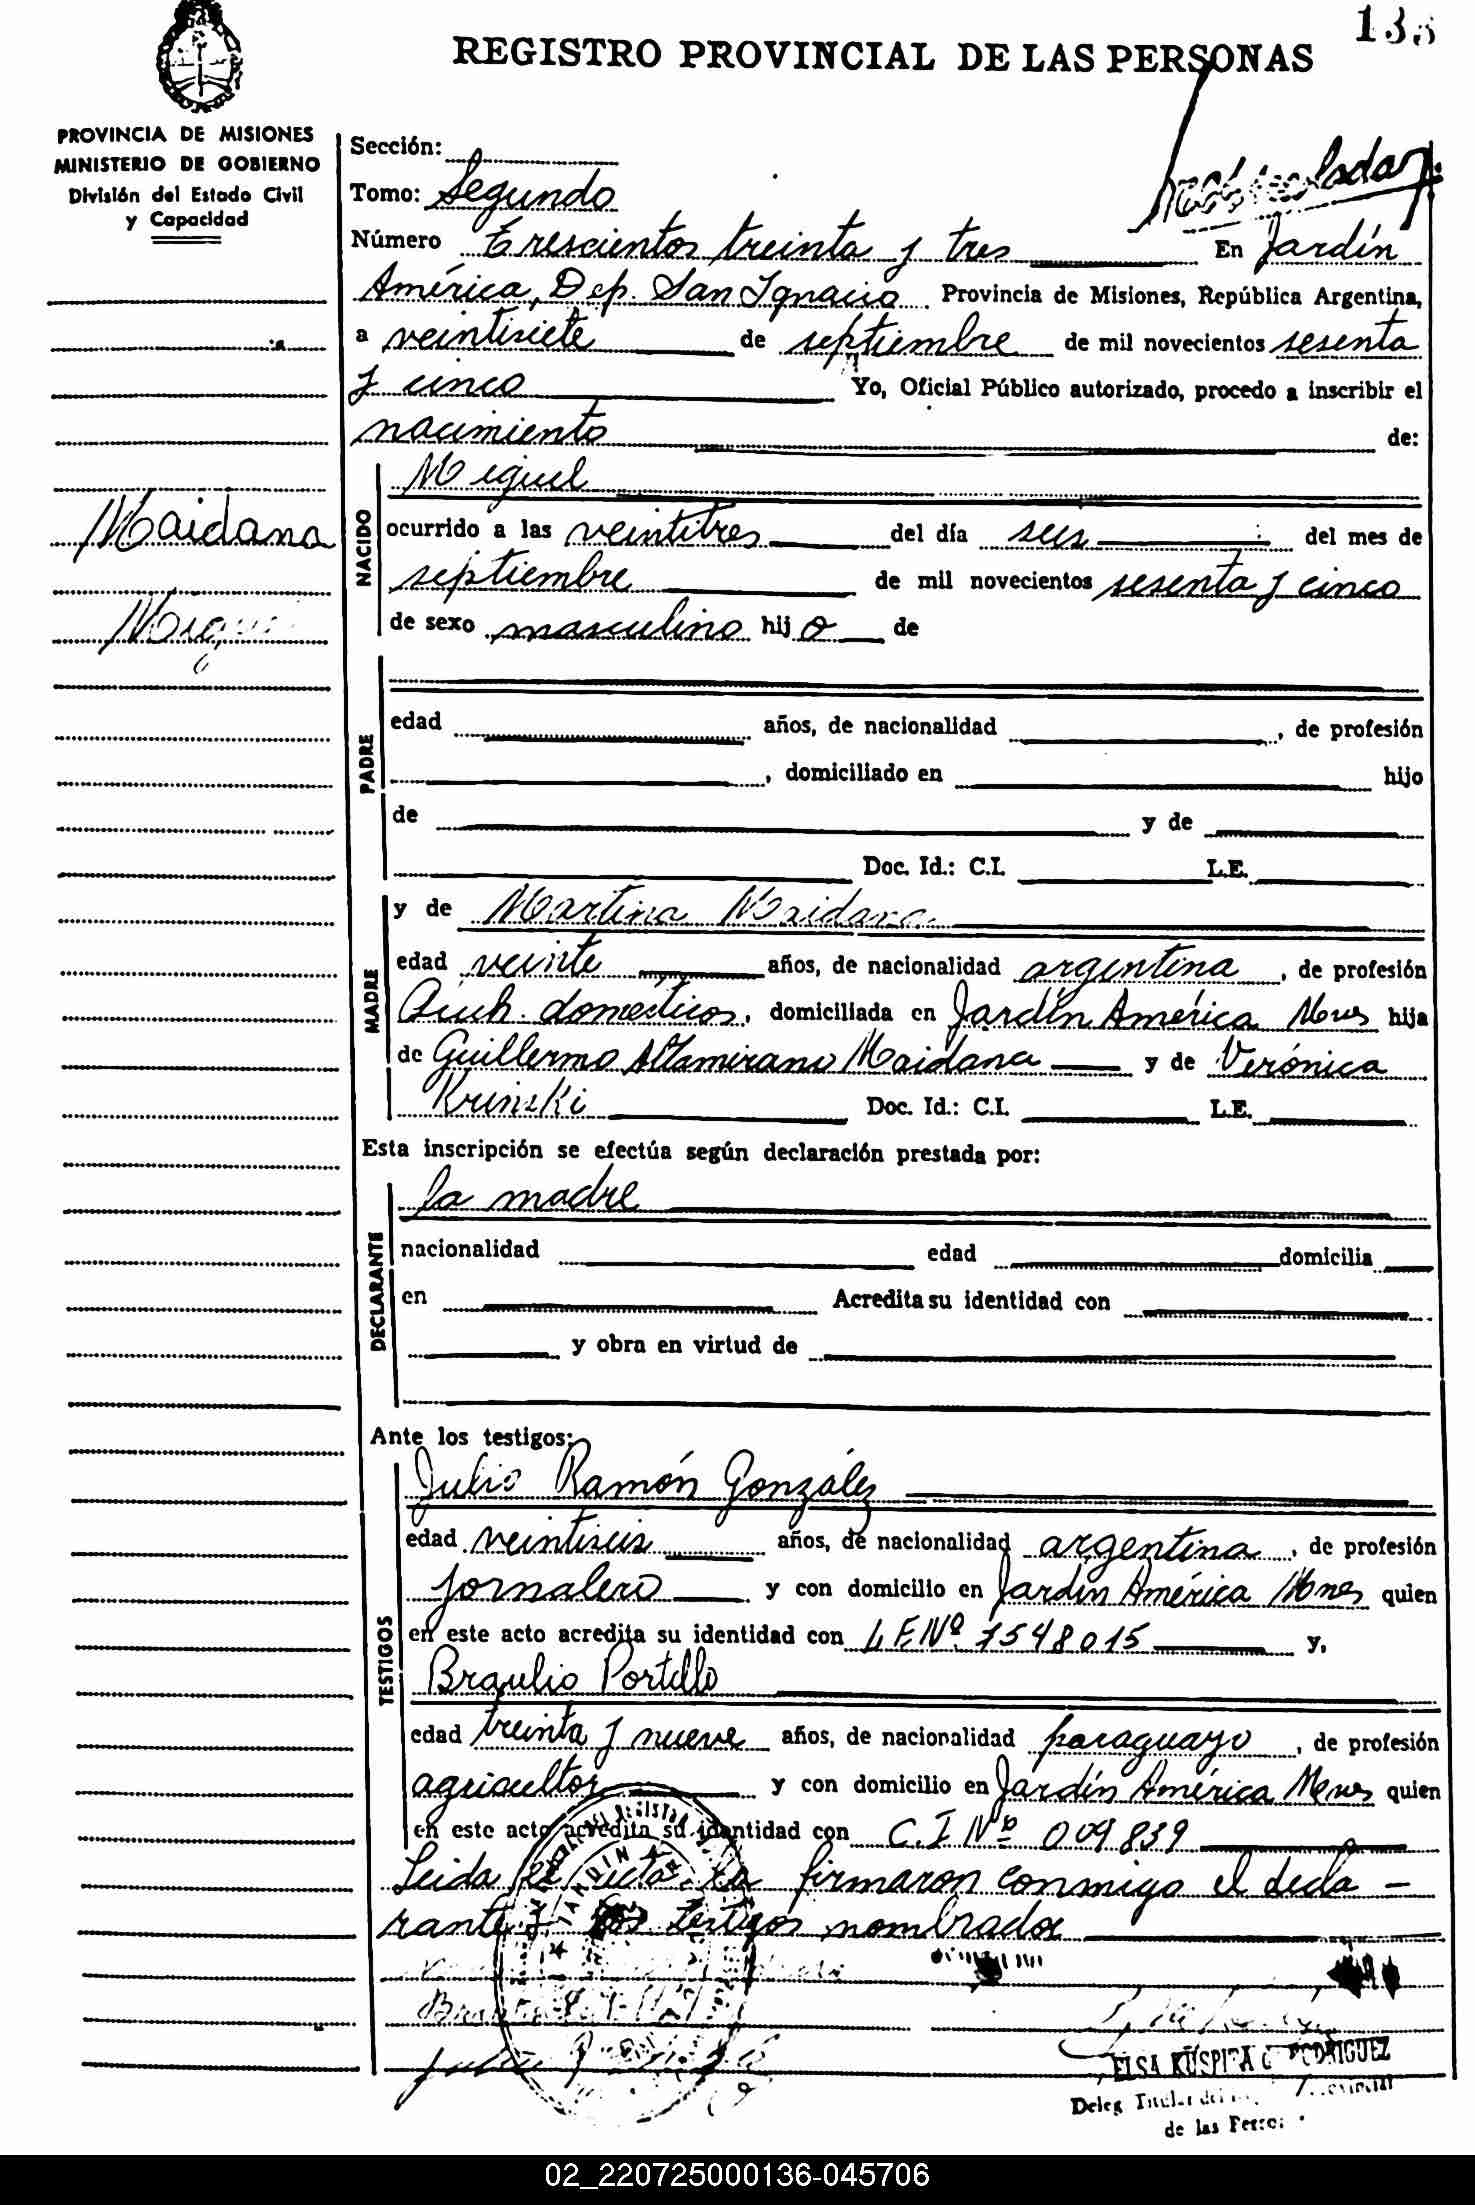 REGISTRO PROVINCIAL DE LAS PERSONAS
PROVINCIA DE MISIONES
MINISTERIO DE GOBIERNO
División del Estado Civil
y Capacidad
Maidana
Sección:
Tomo: Segundo
Número Trescientos treinta y tres En Jardín
América, Dep. San Ignacio Provincia de Misiones, República Argentina,
a veintisiete de septiembre de mil novecientos sesenta
y cinco Yo, Oficial Público autorizado, procedo a inscribir el
nacimiento de:
NACIDO
Miguel
ocurrido a las veintitres del día seis del mes de
septiembre de mil novecientos sesenta y cinco
de sexo masculino hijo de
PADRE
edad años, de nacionalidad , de profesión
, domiciliado en hijo
de y de
Doc. Id.: C.I. L.E.
MADRE
y de Martina Maidana
edad veinte años, de nacionalidad argentina, de profesión
domésticos, domiciliada en Jardín América Mnes hija
de Guillermo Altamirano Maidana y de Verónica
Krinski Doc. Id.: C.I. L.E.
Esta inscripción se efectúa según declaración prestada por:
DECLARANTE
la madre
nacionalidad edad domicilia
en Acredita su identidad con
y obra en virtud de
Ante los testigos:
TESTIGOS
Julio Ramón González
edad veintiseis años, de nacionalidad argentina, de profesión
jornalero y con domicilio en Jardín América Mnes quien
en este acto acredita su identidad con L.E.Nº 7548015 y,
Braulio Portillo
edad treinta y nueve años, de nacionalidad paraguayo, de profesión
agricultor y con domicilio en Jardín América Mnes quien
en este acto acredita su identidad con C.I Nº 009839
Leida el acta, la firmaron conmigo el decla-
rante y los testigos nombrados
ELSA KUSPITA RODRIGUEZ
Deleg Titular del
de las
02_220725000136-045706